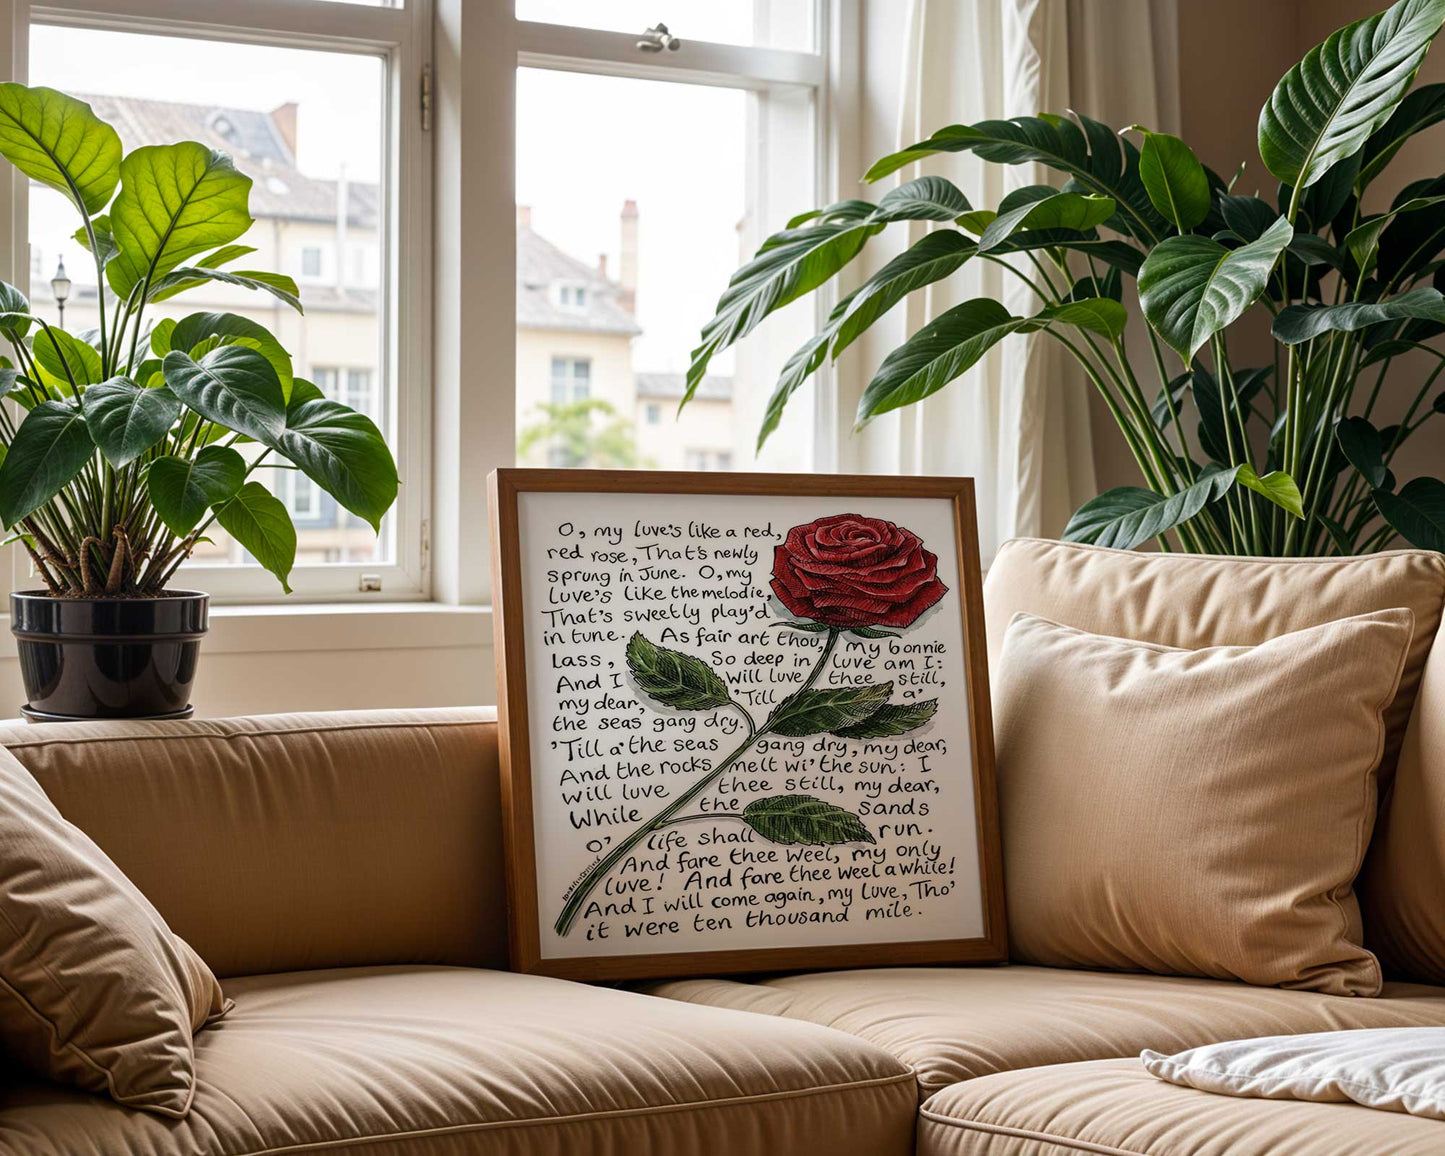 O, my luve's like a red,
red rose, That's newly
sprung in June. O, my
luve's like the melodie,
That's sweetly play'd
in tune. As fair art thou, my bonnie
lass, So deep in luve am I:
And I will luve thee still,
my dear, 'Till a'
the seas gang dry.
'Till a' the seas gang dry, my dear,
And the rocks melt wi' the sun: I
will luve thee still, my dear,
While the sands
o' life shall run.
And fare thee weel, my only
luve! And fare thee weel a while!
And I will come again, my luve, Tho'
it were ten thousand mile.